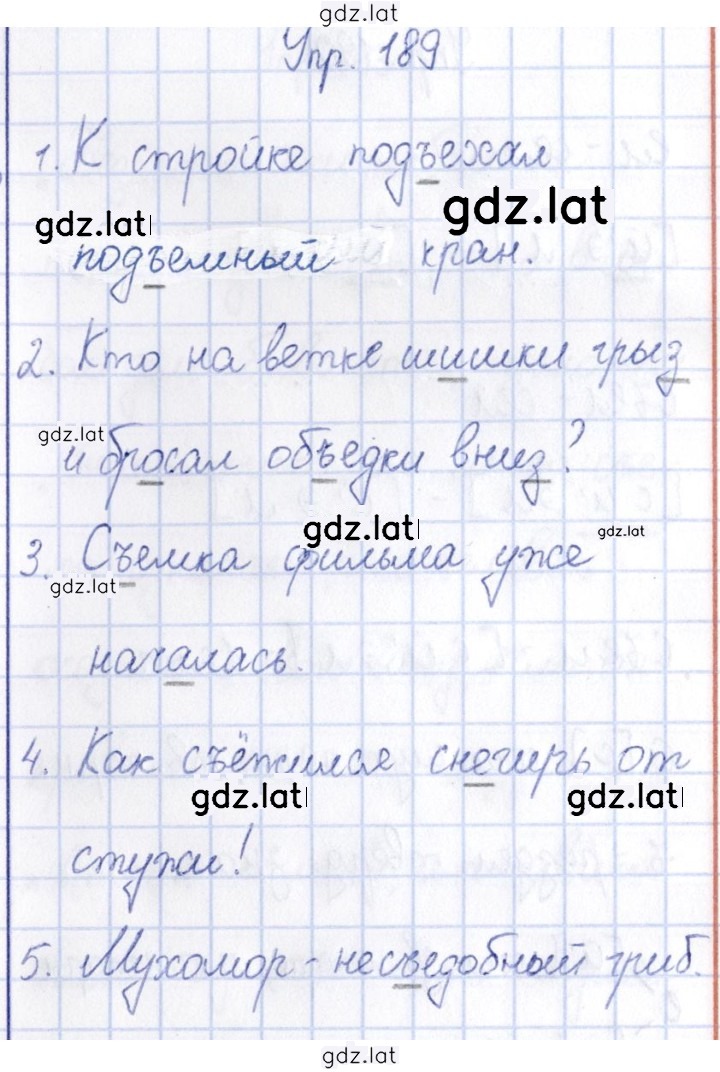 gdz.lat
Упр. 189
1. К стройке подъехал
gdz.lat
gdz.lat
подъемный кран.
2. Кто на ветке шишки грыз
gdz.lat
и бросал объедки вниз?
gdz.lat
gdz.lat
3. Съемка фильма уже
gdz.lat
началась.
4. Как съёжился снегирь от
gdz.lat
gdz.lat
стужи!
5. Мухомор - несъедобный гриб.
gdz.lat